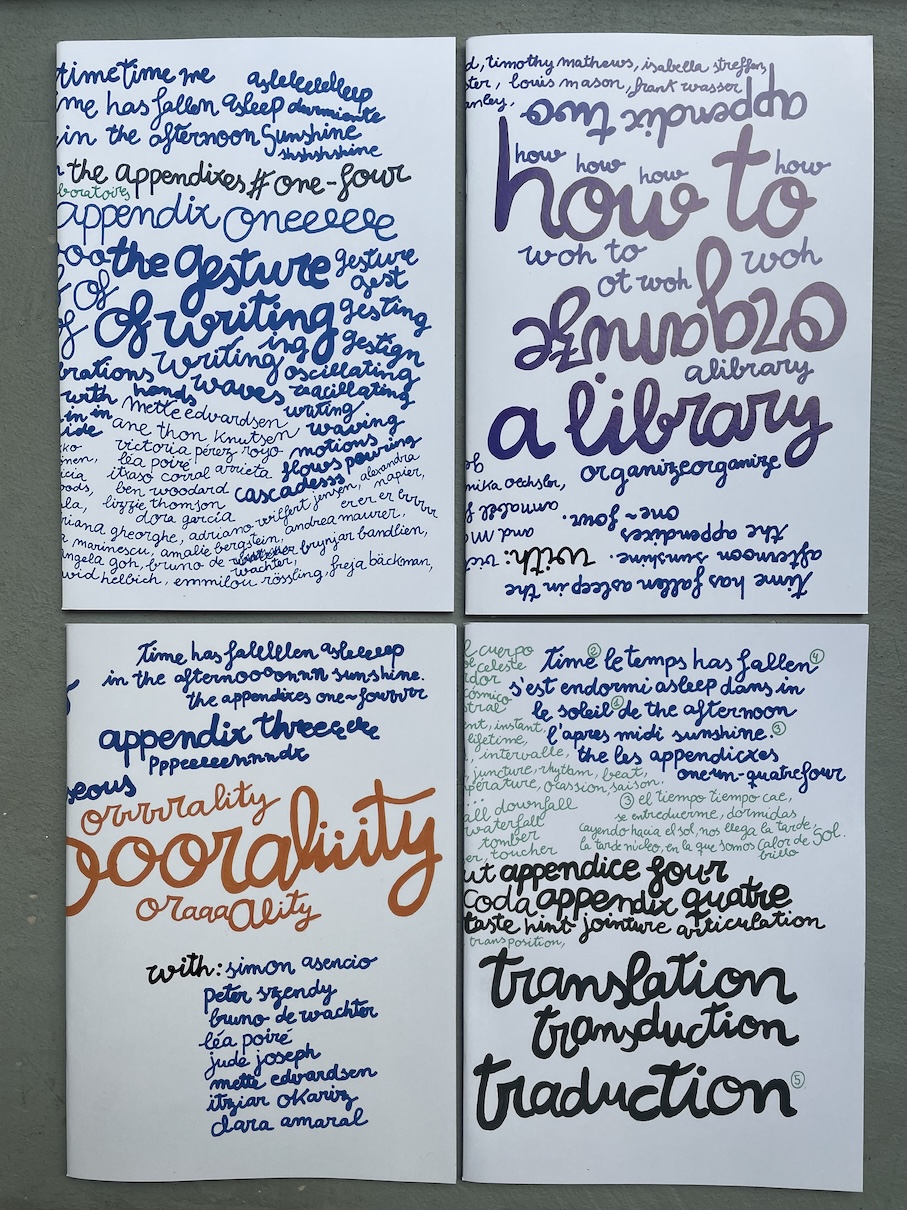 timetime me asleleelelleep
me has fallen asleep durmiente
in the afternoon sunshine
shshshshine
the appendixes #one-four
boratoires
appendix oneeeeee
ooo the gesture gesture
of of gest
of of writing gesting
writing ing gestign
brations waves oscillating
with hands oscillating
in in mette edvardsen writing
ide ane thon knutsen waving
victoria pérez royo motions
nen, léa poiré flows pouring
itxaso corral arrieta cascadesss alexandra
ods, ben woodard napier,
la, lizzie thomson
dora garcía er er er brrrr
riana gheorghe, adriano wilfert jensen,
marinescu, amalie bergstein, andrea maurer,
ngela goh, bruno de wachter, brynjar bandlien,
vid helbich, emmilou rössling, freja bäckman,
d, timothy mathews, isabella streffen,
ster, louis mason, frank wasser
anley,
appendix two
how how how how
how to
woh to woh
ot woh
organize
alibrary
a library
organizeorganize
mika oechsler,
annabel
and
with: vic
time has fallen asleep in the
afternoon sunshine.
the appendixes
one~four.
time has falelllen asleleeep
in the afternooooonnn sunshine.
the appendixes one~fourrrr
appendix threeeee
pppeeeeennnndx
seous
orrrrrality
ooooraliiiity
oraaaality
with: simon asencio
peter szendy
bruno de wachter
léa poiré
jude joseph
mette edvardsen
itziar okariz
clara amaral
l cuerpo
celeste
dor
cósmico
stral
ent, instant,
lifetime,
, intervalle,
juncture, rhythm, beat,
pérature, ocassion saison
...
all downfall
waterfall
tomber
er, toucher
time ② le temps has fallen ④
s'est endormi asleep dans in
le soleil ① de the afternoon
l'apres midi sunshine. ③
the les appendicxes
oneun-quatrefour
③ el tiempo tiempo cae,
se entreduerme, dormidas
cayendo hacia el sol, nos llega la tarde,
la tarde núcleo, en la que somos calor de sol.
brillo
ut appendice four
coda appendix quatre
taste hint jointure articulation
transposition,
translation
transduction
traduction ⑤